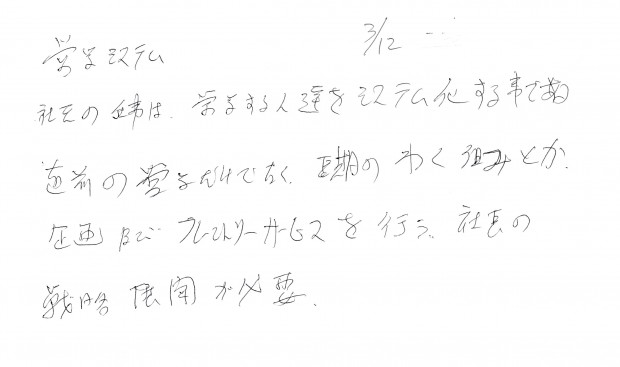 3/12
営業システム
社長の仕事は、営業する人達をシステム化する事であ
直前の営業だけでなく、長期のわく組みとか、
企画及びプレーストリーサービスを行う。社長の
戦略展開が必要。